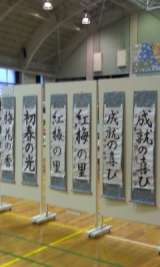 梅花の香
初春の光
紅梅の里
紅梅の里
成就の喜び
成就の喜び